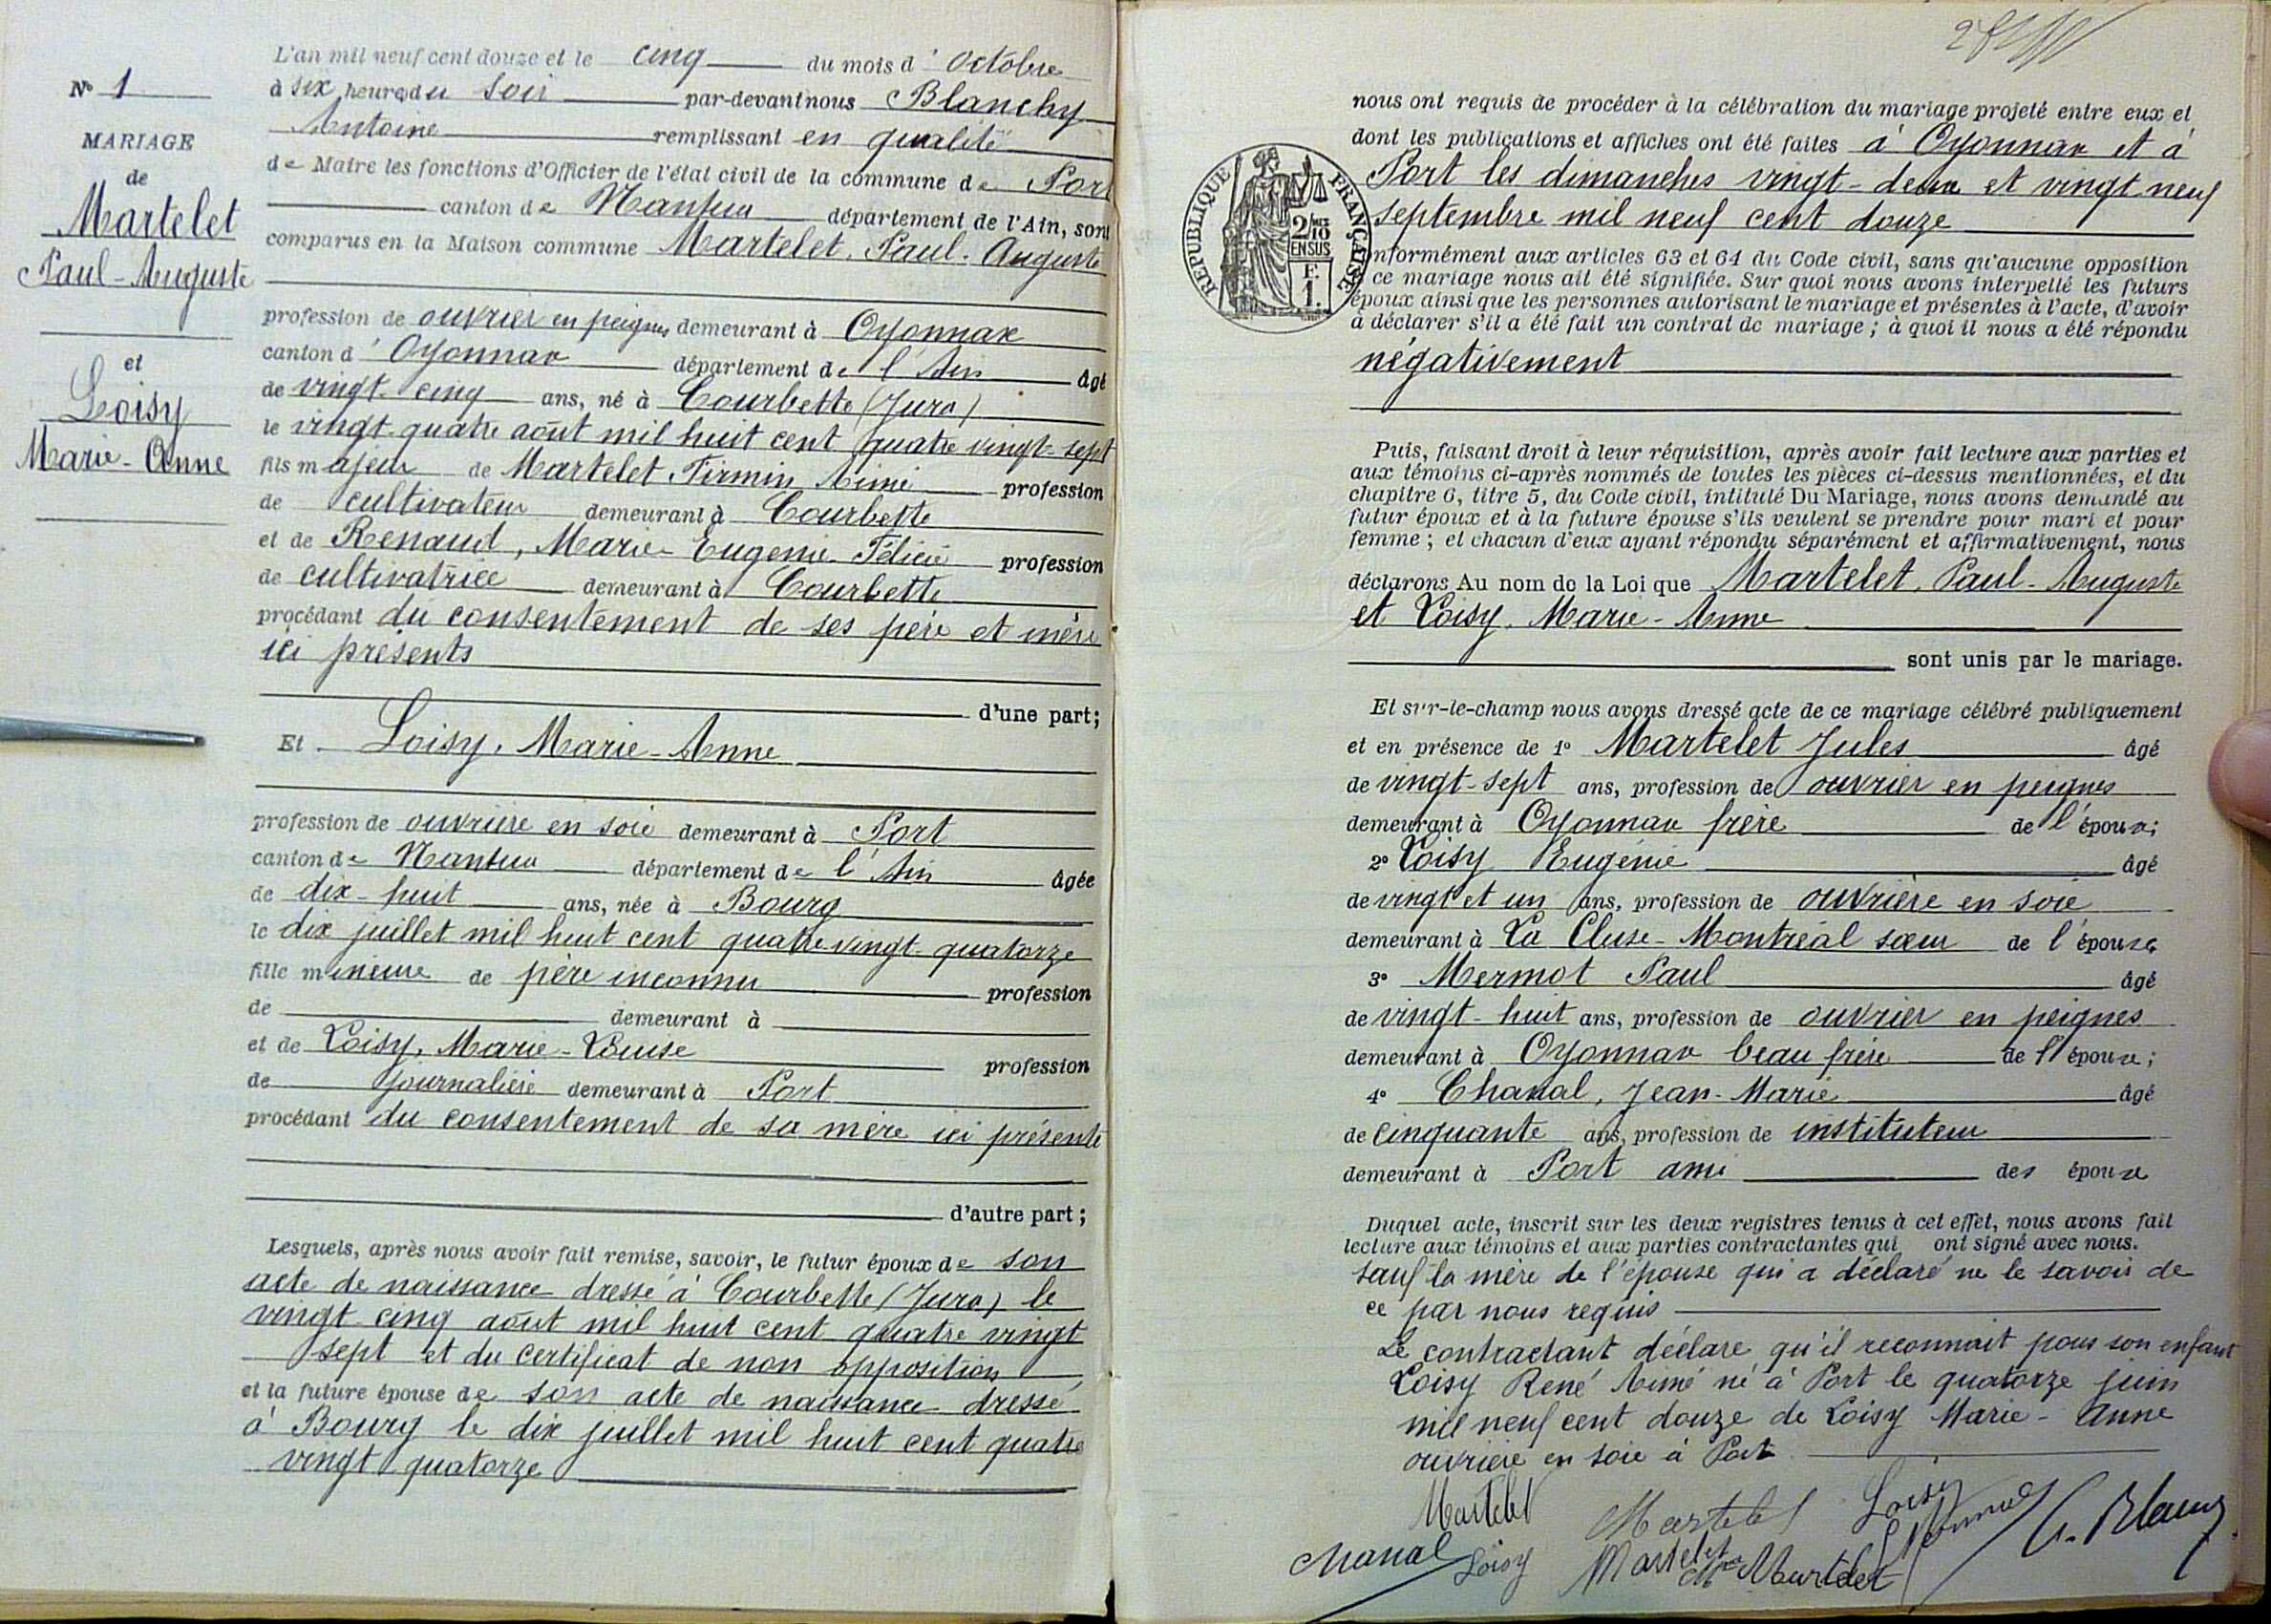 L'an mil neuf cent douze et le cinq du mois d'octobre
N° 1
à six heures du soir par-devant nous Blanchy
Antoine remplissant en qualité
MARIAGE
de Maire les fonctions d'Officier de l'état civil de la commune de Port
de
canton de Nantua département de l'Ain, sont
Martelet
comparus en la Maison commune Martelet, Paul-Auguste
Paul-Auguste
profession de ouvrier en peignes demeurant à Oyonnax
canton d'Oyonnax département de l'Ain âgé
et
de vingt-cinq ans, né à Courbette (Jura)
Loisy
le vingt-quatre août mil huit cent quatre vingt-sept
Marie-Anne
fils majeur de Martelet Firmin Aimé profession
de cultivateur demeurant à Courbette
et de Renaud, Marie-Eugénie-Félicie profession
de cultivatrice demeurant à Courbette
procédant du consentement de ses père et mère
ici présents
d'une part;
Et Loisy, Marie-Anne
profession de ouvrière en soie demeurant à Port
canton de Nantua département de l'Ain âgée
de dix-huit ans, née à Bourg
le dix juillet mil huit cent quatre vingt-quatorze
fille mineure de père inconnu profession
de demeurant à
et de Loisy, Marie-Louise profession
de journalière demeurant à Port
procédant du consentement de sa mère ici présente
d'autre part;
Lesquels, après nous avoir fait remise, savoir, le futur époux de son
acte de naissance dressé à Courbette (Jura) le
vingt-cinq août mil huit cent quatre vingt
sept et du certificat de non opposition
et la future épouse de son acte de naissance dressé
à Bourg le dix juillet mil huit cent quatre
vingt quatorze
nous ont requis de procéder à la célébration du mariage projeté entre eux et
dont les publications et affiches ont été faites à Oyonnax et à
Port les dimanches vingt-deux et vingt neuf
septembre mil neuf cent douze
RÉPUBLIQUE FRANÇAISE
2/10
EN SUS
F.
1.
nformément aux articles 63 et 64 du Code civil, sans qu'aucune opposition
ce mariage nous ait été signifiée. Sur quoi nous avons interpellé les futurs
époux ainsi que les personnes autorisant le mariage et présentes à l'acte, d'avoir
à déclarer s'il a été fait un contrat de mariage; à quoi il nous a été répondu
négativement
Puis, faisant droit à leur réquisition, après avoir fait lecture aux parties et
aux témoins ci-après nommés de toutes les pièces ci-dessus mentionnées, et du
chapitre 6, titre 5, du Code civil, intitulé Du Mariage, nous avons demandé au
futur époux et à la future épouse s'ils veulent se prendre pour mari et pour
femme; et chacun d'eux ayant répondu séparément et affirmativement, nous
déclarons Au nom de la Loi que Martelet, Paul-Auguste
et Loisy, Marie-Anne
sont unis par le mariage.
Et sur-le-champ nous avons dressé acte de ce mariage célébré publiquement
et en présence de 1° Martelet Jules âgé
de vingt-sept ans, profession de ouvrier en peignes
demeurant à Oyonnax frère de l'époux;
2° Loisy Eugénie âgé
de vingt et un ans, profession de ouvrière en soie
demeurant à La Cluse-Montréal sœur de l'épouse
3° Mermot Paul âgé
de vingt-huit ans, profession de ouvrier en peignes
demeurant à Oyonnax beau frère de l'époux;
4° Chanal, Jean-Marie âgé
de cinquante ans, profession de instituteur
demeurant à Port ami des époux
Duquel acte, inscrit sur les deux registres tenus à cet effet, nous avons fait
lecture aux témoins et aux parties contractantes qui ont signé avec nous.
sauf la mère de l'épouse qui a déclaré ne le savoir de
ce par nous requis
Le contractant déclare qu'il reconnait pour son enfant
Loisy René Aimé né à Port le quatorze juin
mil neuf cent douze de Loisy Marie-Anne
ouvrière en soie à Port
Martelet Martelet Loisy
Chanal Loisy Martelet Martelet